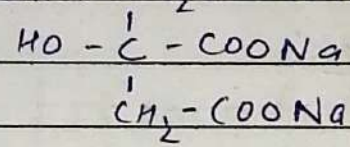 2
HO - C - COONa
CH2 - COONa